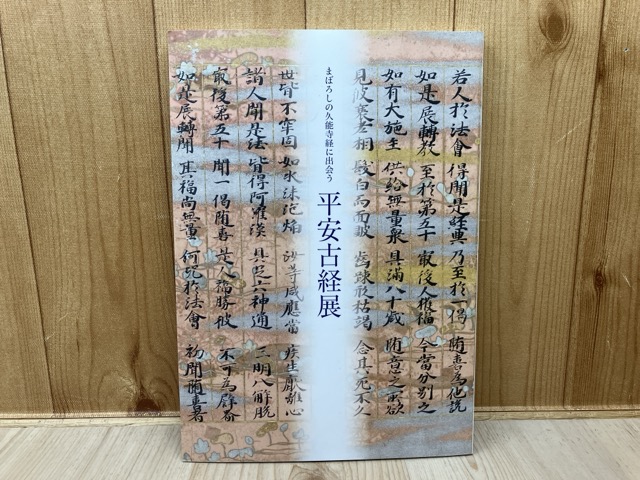 若人於法會 得聞是経典 乃至於一偈 随喜為他説
如是展轉教 至於第五十 㝡後人獲福 今當分別之
如有大施主 供給無量衆 具満八十歳 随意之所欲
見彼衰老相 髪白而面皺 歯踈形枯竭 念其死不久
まぼろしの久能寺経に出会う
平安古経展
世皆不牢固 如水沫泡焔 汝等咸應當 疾生厭離心
諸人聞是法 皆得阿羅漢 具足六神通 三明八解脱
㝡後第五十 聞一偈随喜 是人福勝彼 不可為譬喩
如是展轉聞 其福尚無量 何况於法會 初聞随喜者